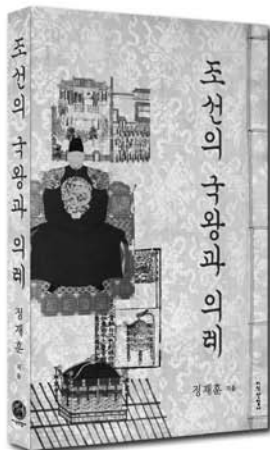 조선의 국왕과 의례
정재훈 지음
조선의 국왕과 의례
정재훈 지음